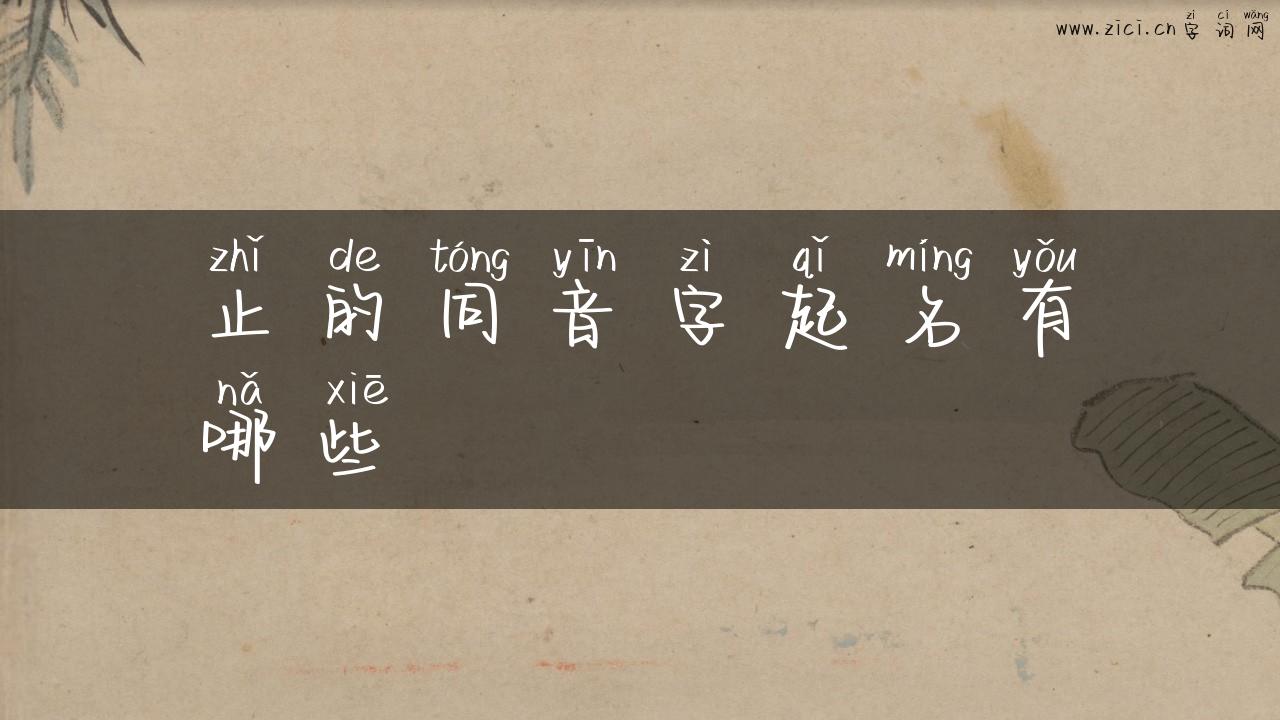 zì cí wǎng
www.zici.cn 字词网
zhǐ de tóng yīn zì qǐ míng yǒu
止的同音字起名有
nǎ xiē
哪些